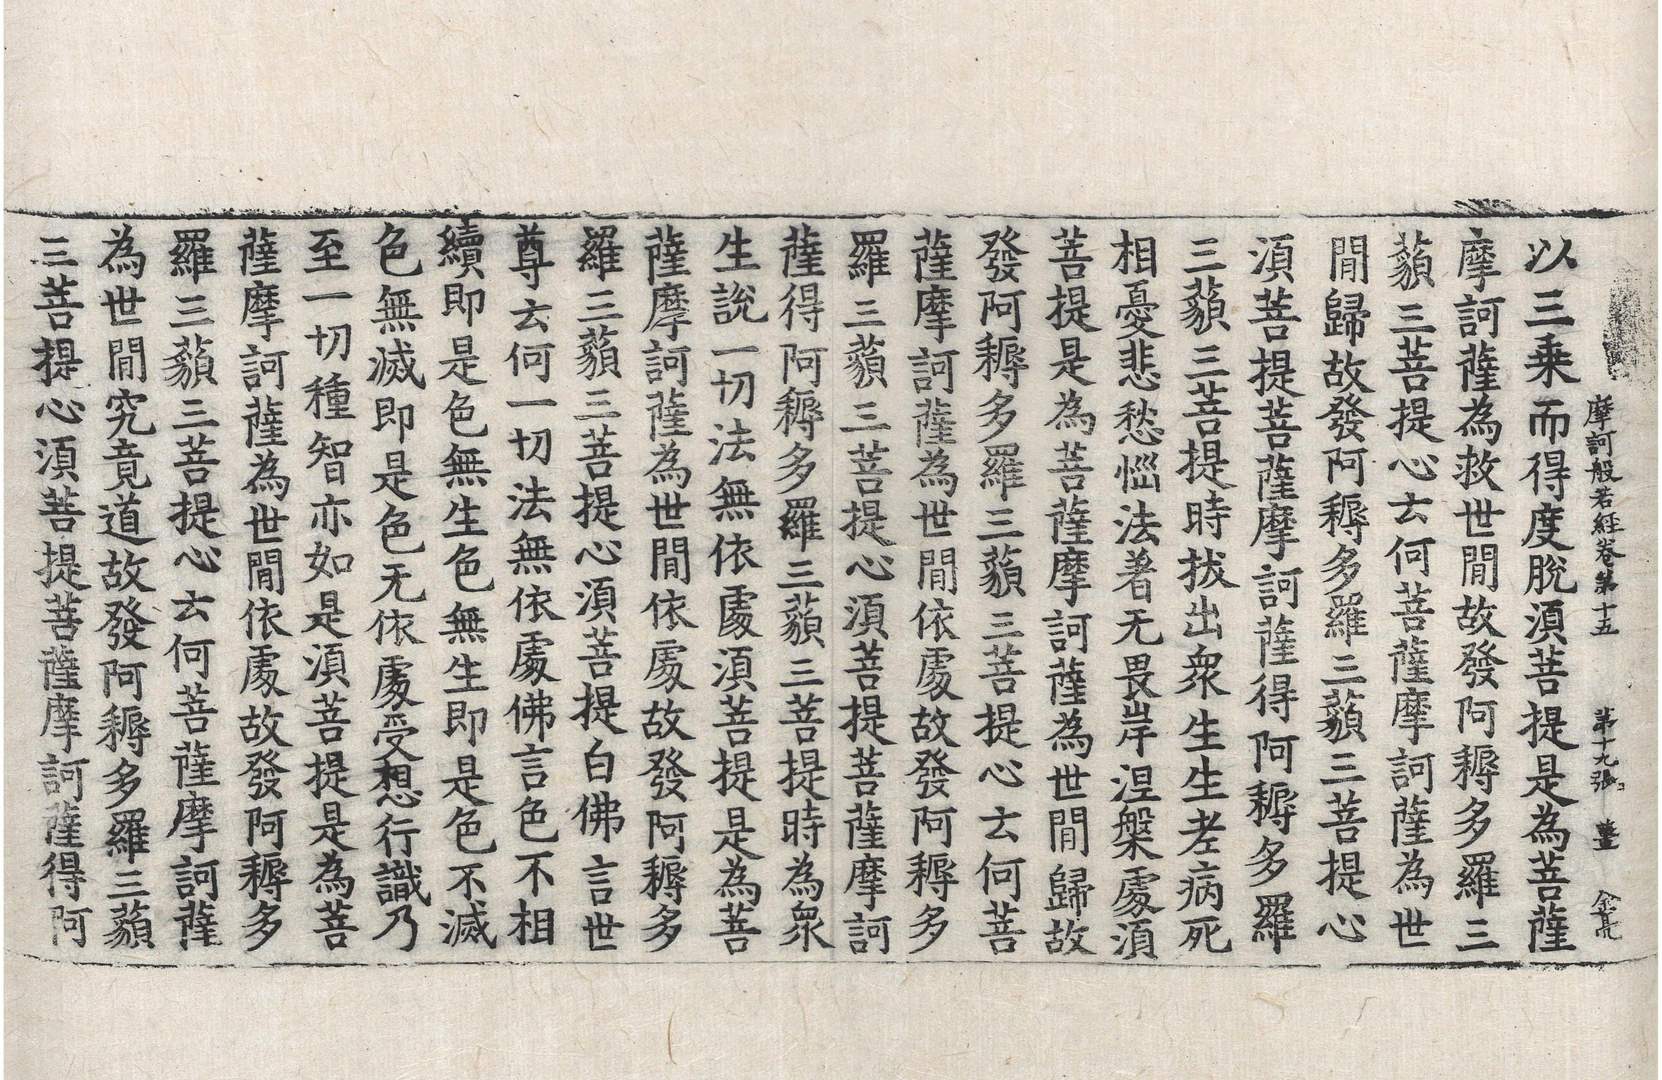 摩訶般若經卷第十五　第十九張　薑　金亮
以三乗而得度脫湏菩提是為菩薩
摩訶薩為救世間故發阿耨多羅三
藐三菩提心云何菩薩摩訶薩為世
間歸故發阿耨多羅三藐三菩提心
湏菩提菩薩摩訶薩得阿耨多羅
三藐三菩提時拔出衆生生老病死
相憂悲愁惱法著无畏岸涅槃處湏
菩提是為菩薩摩訶薩為世間歸故
發阿耨多羅三藐三菩提心云何菩
薩摩訶薩為世間依處故發阿耨多
羅三藐三菩提心湏菩提菩薩摩訶
薩得阿耨多羅三藐三菩提時為衆
生說一切法無依處湏菩提是為菩
薩摩訶薩為世間依處故發阿耨多
羅三藐三菩提心湏菩提白佛言世
尊云何一切法無依處佛言色不相
續即是色無生色無生即是色不滅
色無滅即是色无依處受想行識乃
至一切種智亦如是湏菩提是為菩
薩摩訶薩為世間依處故發阿耨多
羅三藐三菩提心云何菩薩摩訶薩
為世間究竟道故發阿耨多羅三藐
三菩提心湏菩提菩薩摩訶薩得阿